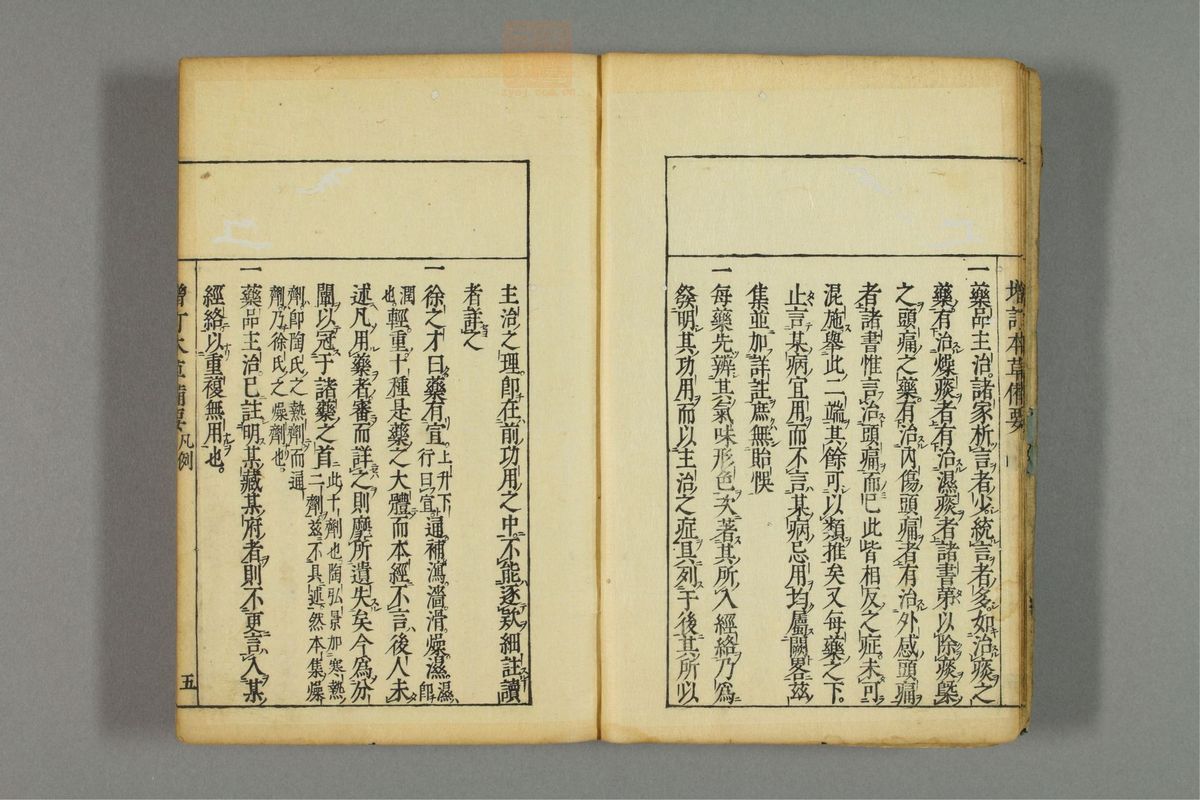 增訂本草備要
一藥品主治。諸家析言者少。統言者多。如治痰之
藥。有治燥痰者。有治濕痰者。諸書第以除痰槩
之。頭痛之藥。有治內傷頭痛者。有治外感頭痛
者。諸書惟言治頭痛而已。此皆相反之症。未可
混施。舉此二端。其餘可以類推矣。又每藥之下。
止言某病宜用。而不言某病忌用。均屬闕畧。茲
集並加詳註。庶無貽悞
一每藥先辨其氣味形色。次著其所入經絡。乃爲
發明其功用。而以主治之症具列于後。其所以
主治之理。卽在前功用之中。不能逐欵細註。讀
者詳之
一徐之才曰。藥有宣上升下行曰宣通補瀉濇滑燥濕濕卽
潤也輕重十種。是藥之大體。而本經不言。後人未
述。凡用藥者審而詳之。則靡所遺失矣。今爲分
闡。以冠于諸藥之首此十劑也陶弘景加寒熱二劑茲不具述然本集燥
劑卽陶氏之熱劑而通劑乃徐氏之燥劑也。
一藥品主治。已註明某藏某府者。則不更言入某
經絡。以重複無用也。
增訂本草備要 凡例 五